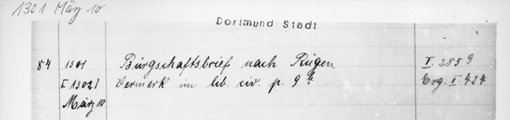 1301 März 10
Dortmund Stadt
84 1301 Bürgschaftsbrief nach Rügen I. 285 g
[1302] Vermerk im lib. civ. p. 9 a Erg. I 424
März 10